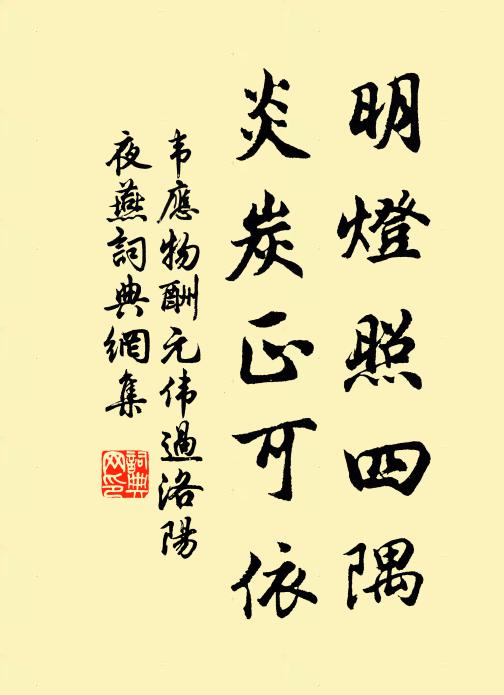 明燈照四隅
炎炭正可依
韦應物酬元伟過洛陽
夜燕詞典網集
詞典
网印